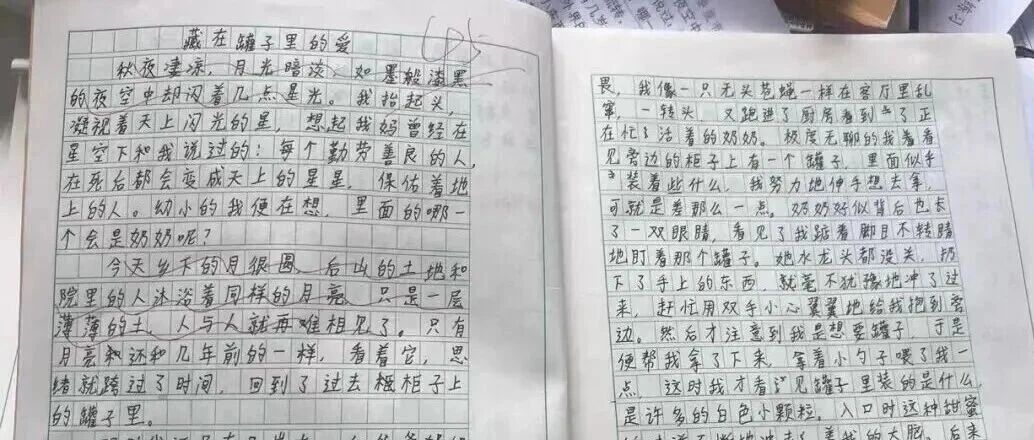 藏在罐子里的爱
秋夜凄凉，月光暗淡，如墨般漆黑
的夜空中却闪着几点星光。我抬起头，
凝视着天上闪光的星，想起我妈曾经在
星空下和我说过的：每个勤劳善良的人，
在死后都会变成天上的星星，保佑着地
上的人。幼小的我便在想，里面的哪一
个会是奶奶呢？
今天乡下的月很圆，后山的土地和
院里的人沐浴着同样的月亮，只是一层
薄薄的土，人与人就再难相见了。只有
月亮和还和几年前的一样，看着它，思
绪就跨过了时间，回到了过去柜子上
的罐子里。
畏，我像一只无头苍蝇一样在客厅里乱
窜，一转头，又跑进了厨房看到了正
在忙活着的奶奶。极度无聊的我看看
见旁边的柜子上有一个罐子，里面似乎
装着些什么，我努力地伸手想去拿，
可就是差那么一点。奶奶好似背后也长
了一双眼睛，看见了我踮着脚目不转睛
地盯着那个罐子。她水龙头都没关，扔
下了手上的东西，就毫不犹豫地冲了过
来，赶忙用双手小心翼翼地给我抱到旁
边。然后才注意到我是想要罐子，于是
便帮我拿了下来，拿着小勺子喂了我一
点，这时我才看见罐子里装的是什么，
是许多的白色小颗粒，入口时这种甜蜜